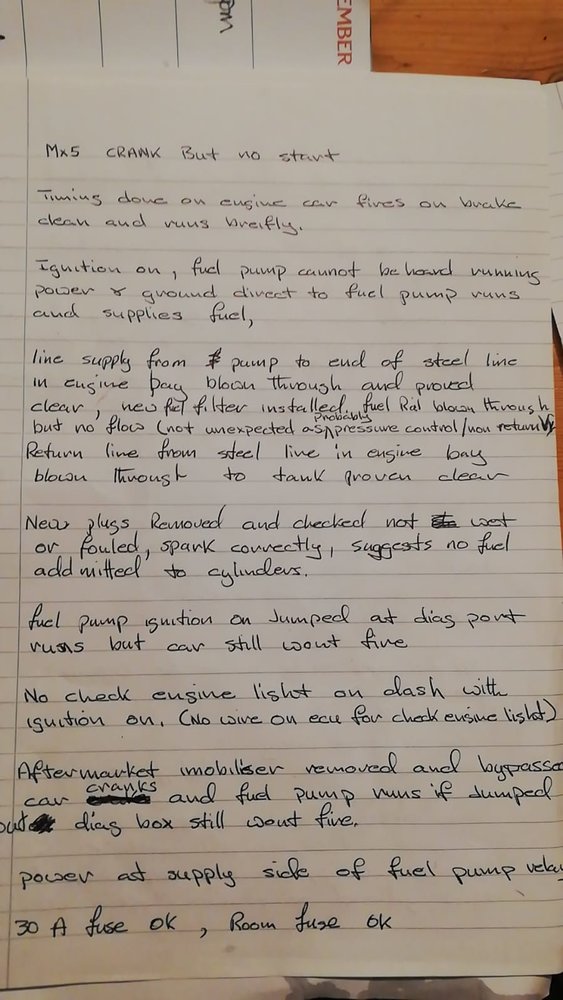 EMBER
Mx5 CRANK But no start
Timing done on engine car fires on brake
clean and runs breifly.
Ignition on, fuel pump cannot be heard running
power & ground direct to fuel pump runs
and supplies fuel,
line supply from pump to end of steel line
in engine bay blown through and proved
clear, new fuel filter installed, fuel Rail blown through
but no flow (not unexpected as probably pressure control/non return V
Return line from steel line in engine bay
blown through to tank proven clear
New plugs Removed and checked not wet
or fouled, spark correctly, suggests no fuel
addmitted to cylinders.
fuel pump ignition on Jumped at diag port
runs but car still wont fire
No check engine light on dash with
ignition on. (No wire on ecu for check engine light)
Aftermarket imobiliser removed and bypasse
car cranks and fuel pump runs if Jumped
out diag box still wont fire.
power at supply side of fuel pump relay
30 A fuse OK, Room fuse OK